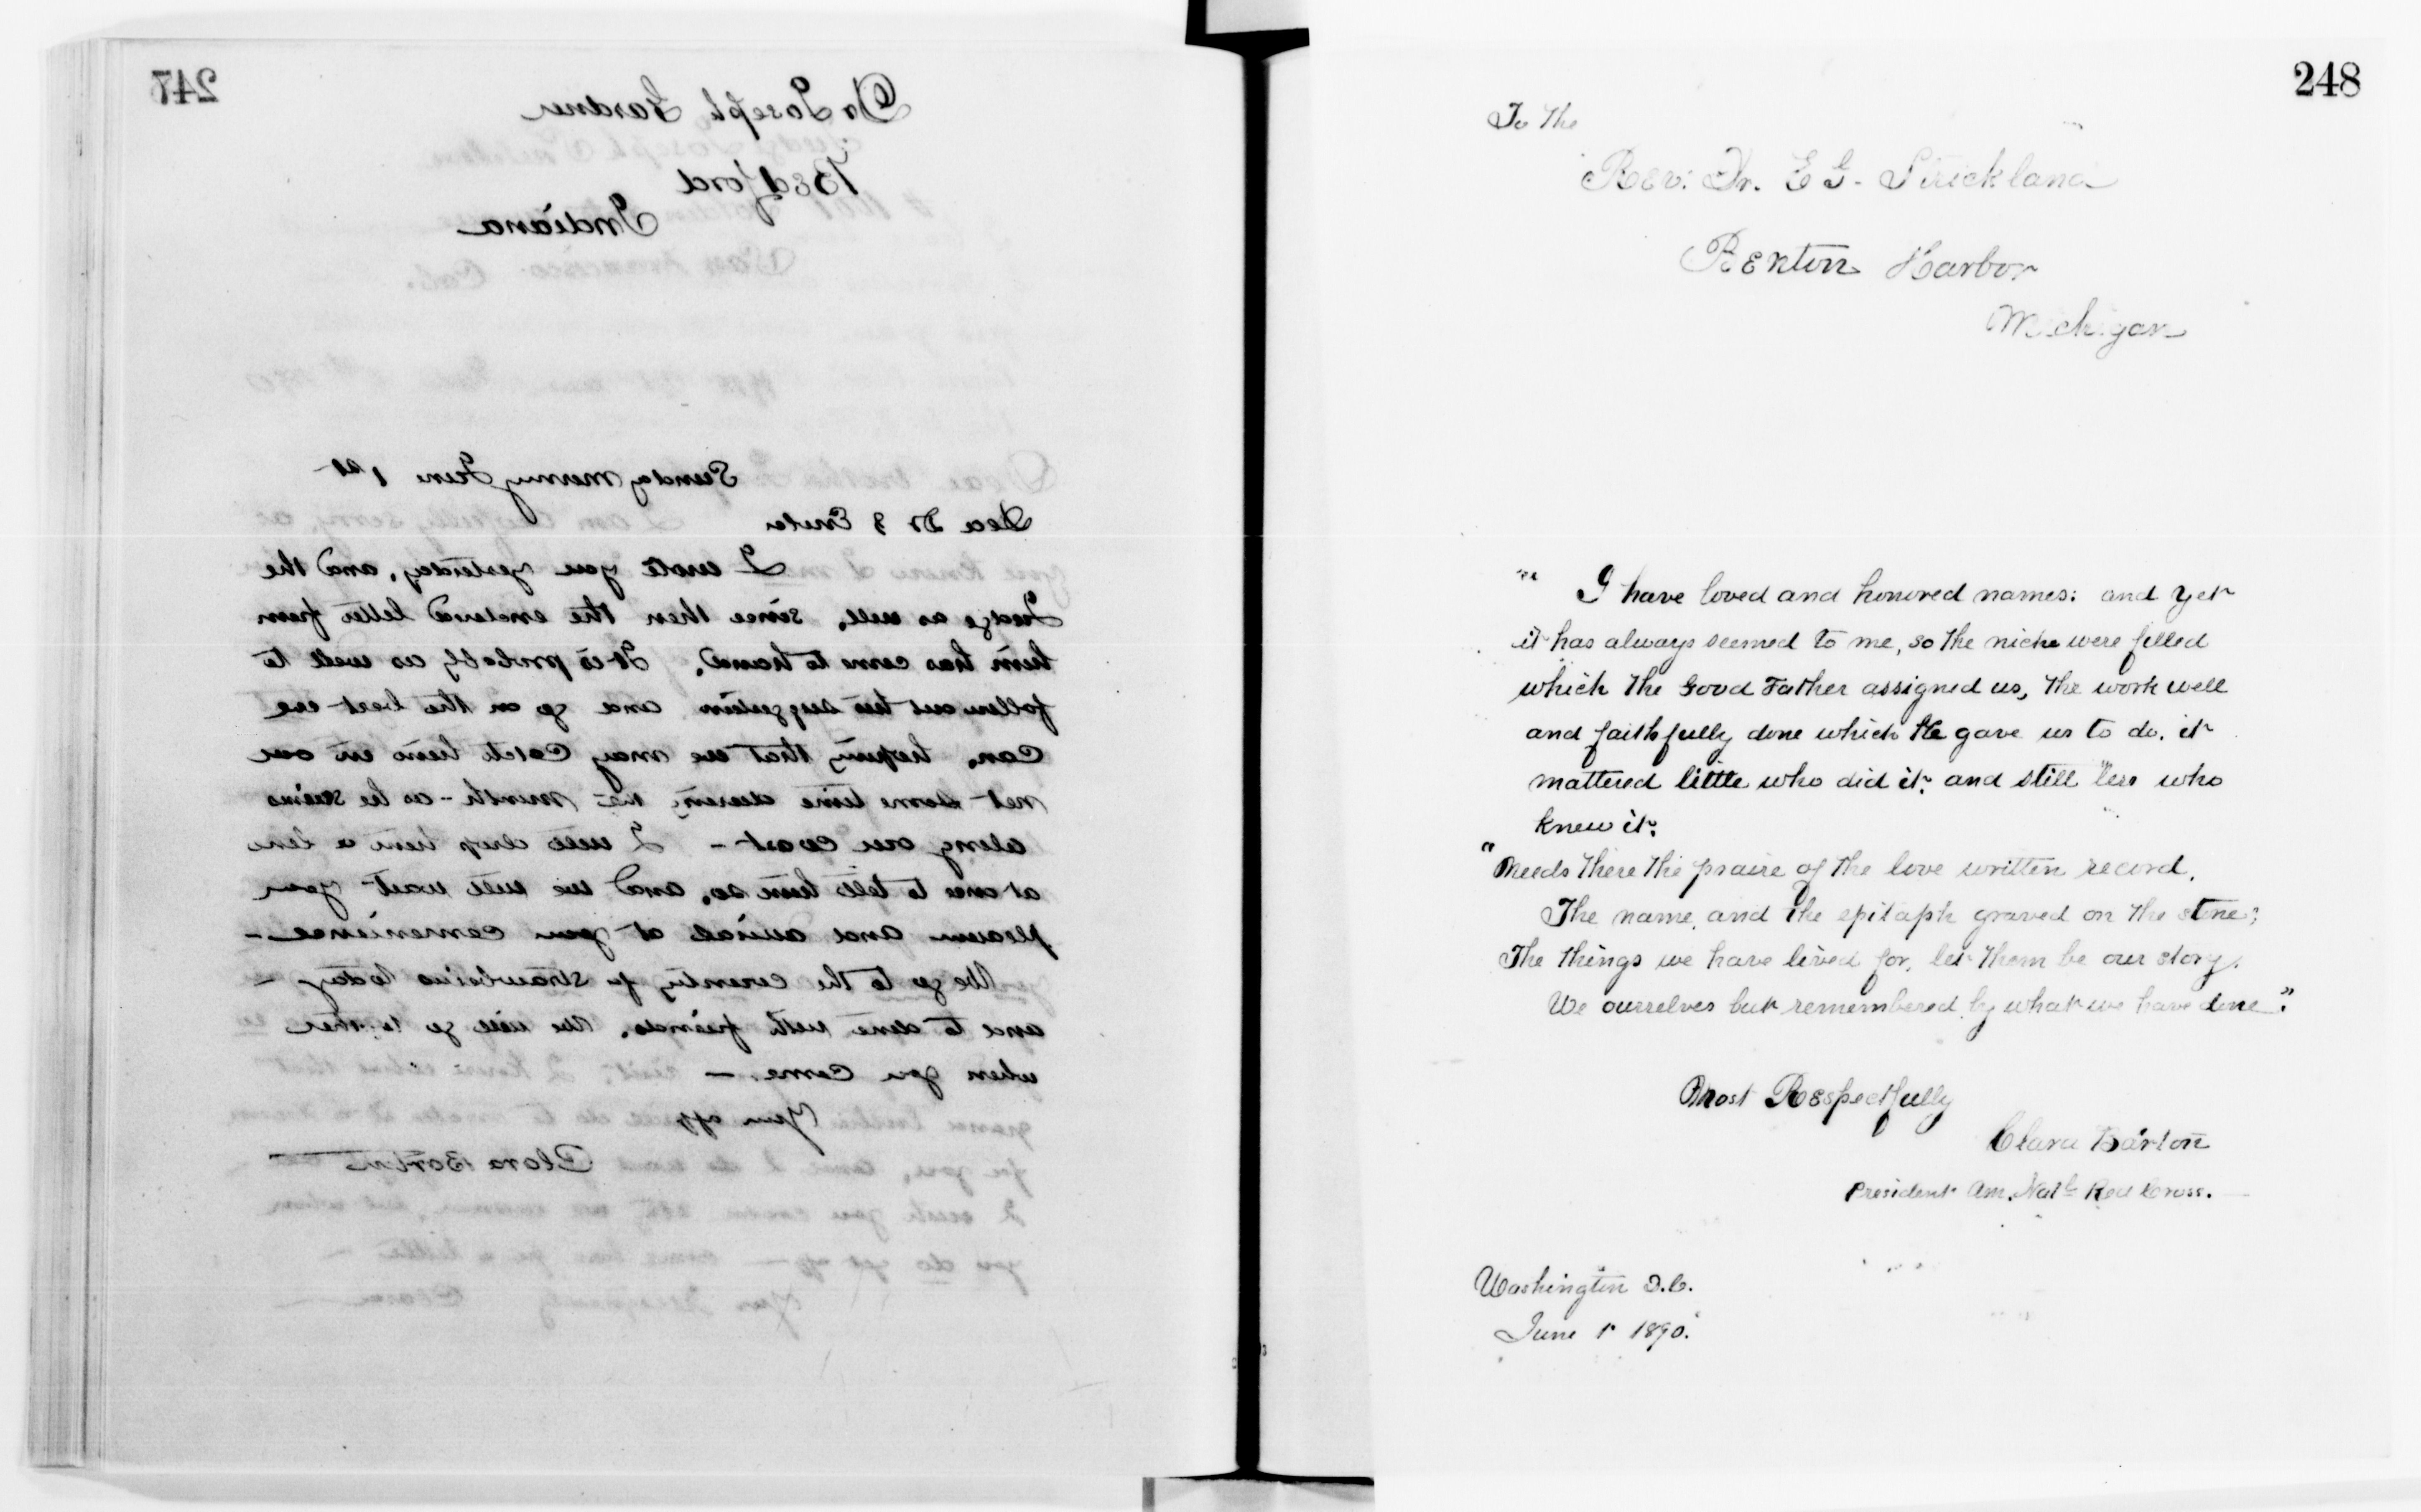 247
Dr Joseph Gardner
Bedford
Indiana
Sunday morning June 1st
Dear Dr & Enola
I wrote you yesterday, and the
Judge as well, since then the enclosed letter from
him has come to hand. It is probably as well to
follow out his suggestion and go on the best we
can, hoping that we may catch him in our
net some time during the month - as he swims
along our coast - I will drop him a line
at once to tell him so, and we will wait your
pleasure and arrival at your convenience -
We go to the country for strawberries today -
and to dine with friends. We will go together
when you come. -
Your affec
Clara Barton
248
To the
Rev: Dr. E G. Strickland
Benton Harbor
Michigan
"" I have loved and honored names: and yet
it has always seemed to me, so the niche were filled
which the Good Father assigned us, the work well
and faithfully done which He gave us to do, it
mattered little who did it; and still less who
knew it:
"Needs there the praise of the love written record,
The name, and the epitaph graved on the stone;
The things we have lived for, let them be our story,
We ourselves but remembered by what we have done".
Most Respectfully
Clara Barton
President Am. Natl Red Cross.
Washington D.C.
June 1st 1890.